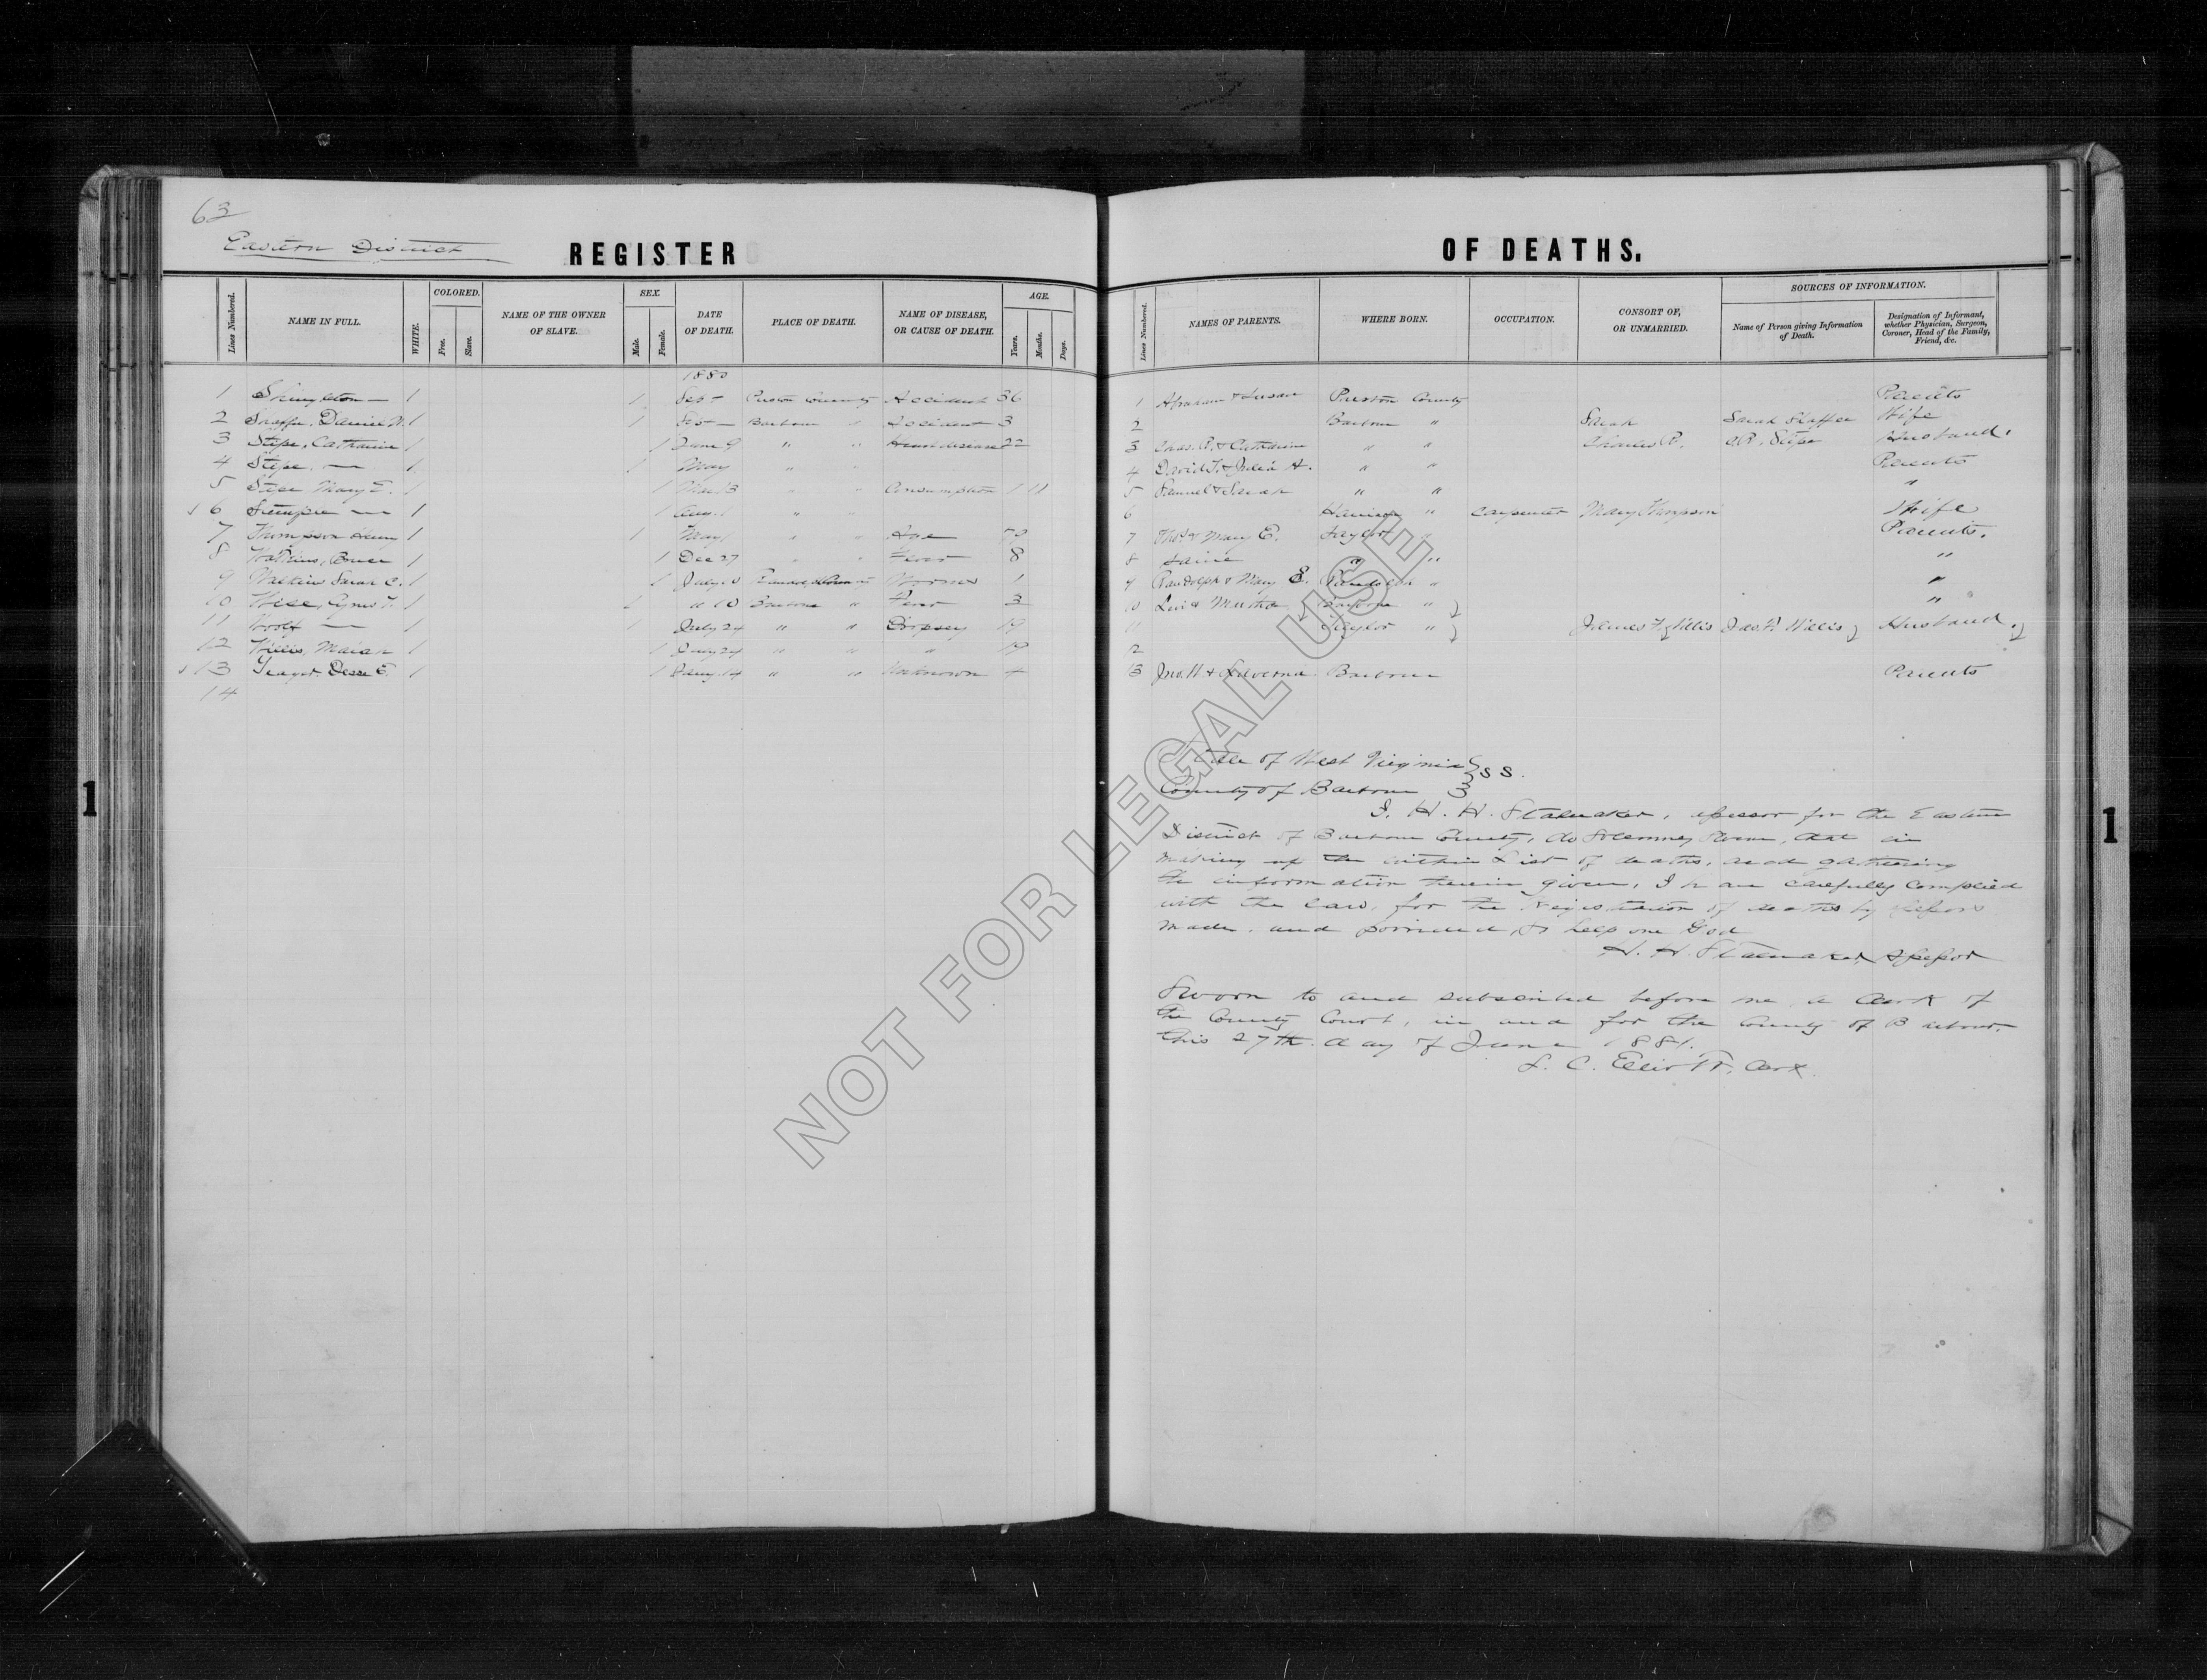 63
Eastern District
REGISTER OF DEATHS.
Lines Numbered. NAME IN FULL. WHITE. COLORED. Free. Slave. NAME OF THE OWNER OF SLAVE. SEX. Male. Female. DATE OF DEATH. PLACE OF DEATH. NAME OF DISEASE, OR CAUSE OF DEATH. AGE. Years. Months. Days.
1880
1 Shingleton — 1 1 Feb — Preston County Accident 36
2 Daniel W. 1 1 Feb — Barbour " Accident 3
3 Stipe, Catharine 1 1 June 9 " " Heart disease 22
4 Stipe, — 1 1 May " "
5 Stipe Mary E. 1 1 Mar 13 " " Consumption 1 11
6 — 1 1 Aug. 1 " "
7 Thompson Henry 1 1 May 1 " " Age 79
8 Watkins, 1 1 Dec 27 " " Fever 8
9 Watkins Sarah C. 1 1 July 10 Worms 1
10 Wise, 1 1 " 10 Barbour " Fever 3
11 Wolf — 1 1 July 24 " " Dropsey 19
12 Willis, Mariah 1 1 July 24 " " " 19
13 Yeager 1 1 Jany. 14 " " Unknown 4
14
Lines Numbered. NAMES OF PARENTS. WHERE BORN. OCCUPATION. CONSORT OF, OR UNMARRIED. SOURCES OF INFORMATION. Name of Person giving Information of Death. Designation of Informant, whether Physician, Surgeon, Coroner, Head of the Family, Friend, &c.
1 Abraham & Susan Preston County Parents
2 Barbour " Sarah Sarah Shaffer Wife
3 Chas. R. & Catharine " " Charles R. C.R. Stipe Husband.
4 David T. & Julia A. " " Parents
5 Samuel & Sarah " " "
6 Harrison " Carpenter Mary Thompson Wife
7 Thos & Mary E. Taylor " Parents.
8 Same " " "
9 Randolph & Mary E. Randolph " "
10 Levi & Martha Barbour " "
11 Taylor " James F. Willis Jas. F. Willis Husband.
12
13 Jno. W. & Barbour Parents
State of West Virginia } SS.
County of Barbour }
I, H. H. Stalnaker, assessor for the Eastern
District of Barbour County, do solemnly swear, that in
making up the within List of deaths, and gathering
the information therein given, I have carefully complied
with the law, for the Registration of deaths by
made, and provided, so help me God
H. H. Stalnaker, Assessor
Sworn to and subscribed before me, a Clerk of
the County Court, in and for the County of Barbour.
this 27th. day of June 1881.
L. C. Elliott, Clerk.
1
1
NOT FOR LEGAL USE